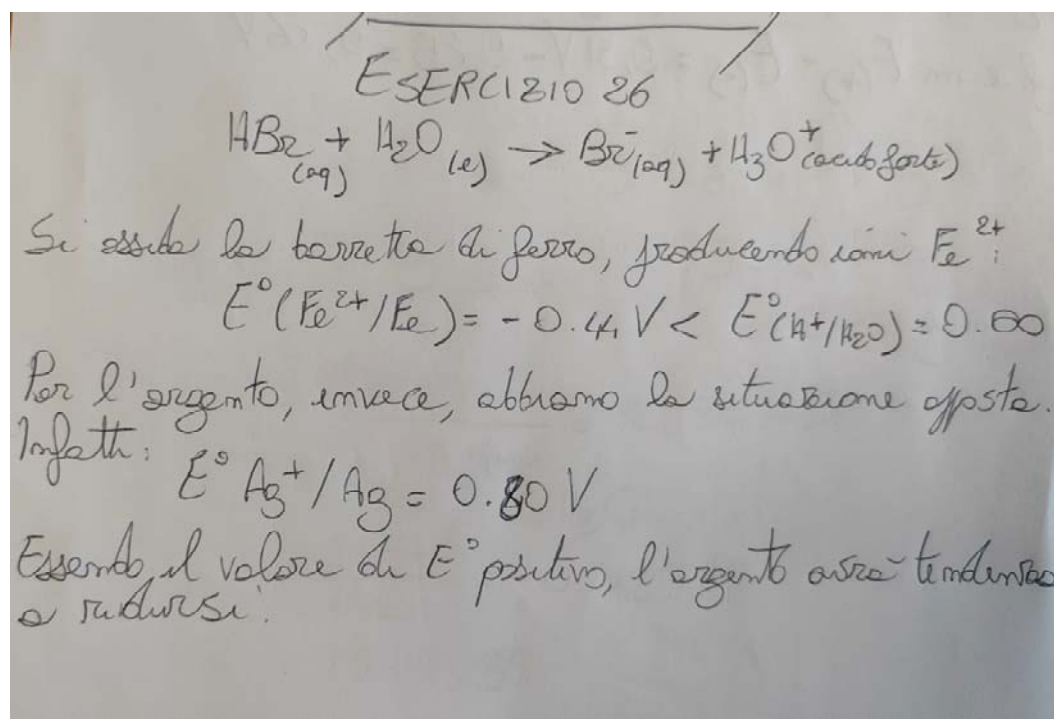 ESERCIZIO 26
HBr(aq) + H2O(l) → Br-(aq) + H3O+ (acido forte)
Si ossida la barretta di ferro, producendo ioni Fe2+:
E°(Fe2+/Fe) = - 0.44 V < E°(H+/H2O) = 0.00
Per l'argento, invece, abbiamo la situazione opposta.
Infatti:
E° Ag+/Ag = 0.80 V
Essendo il valore di E° positivo, l'argento avrà tendenza
a ridursi.